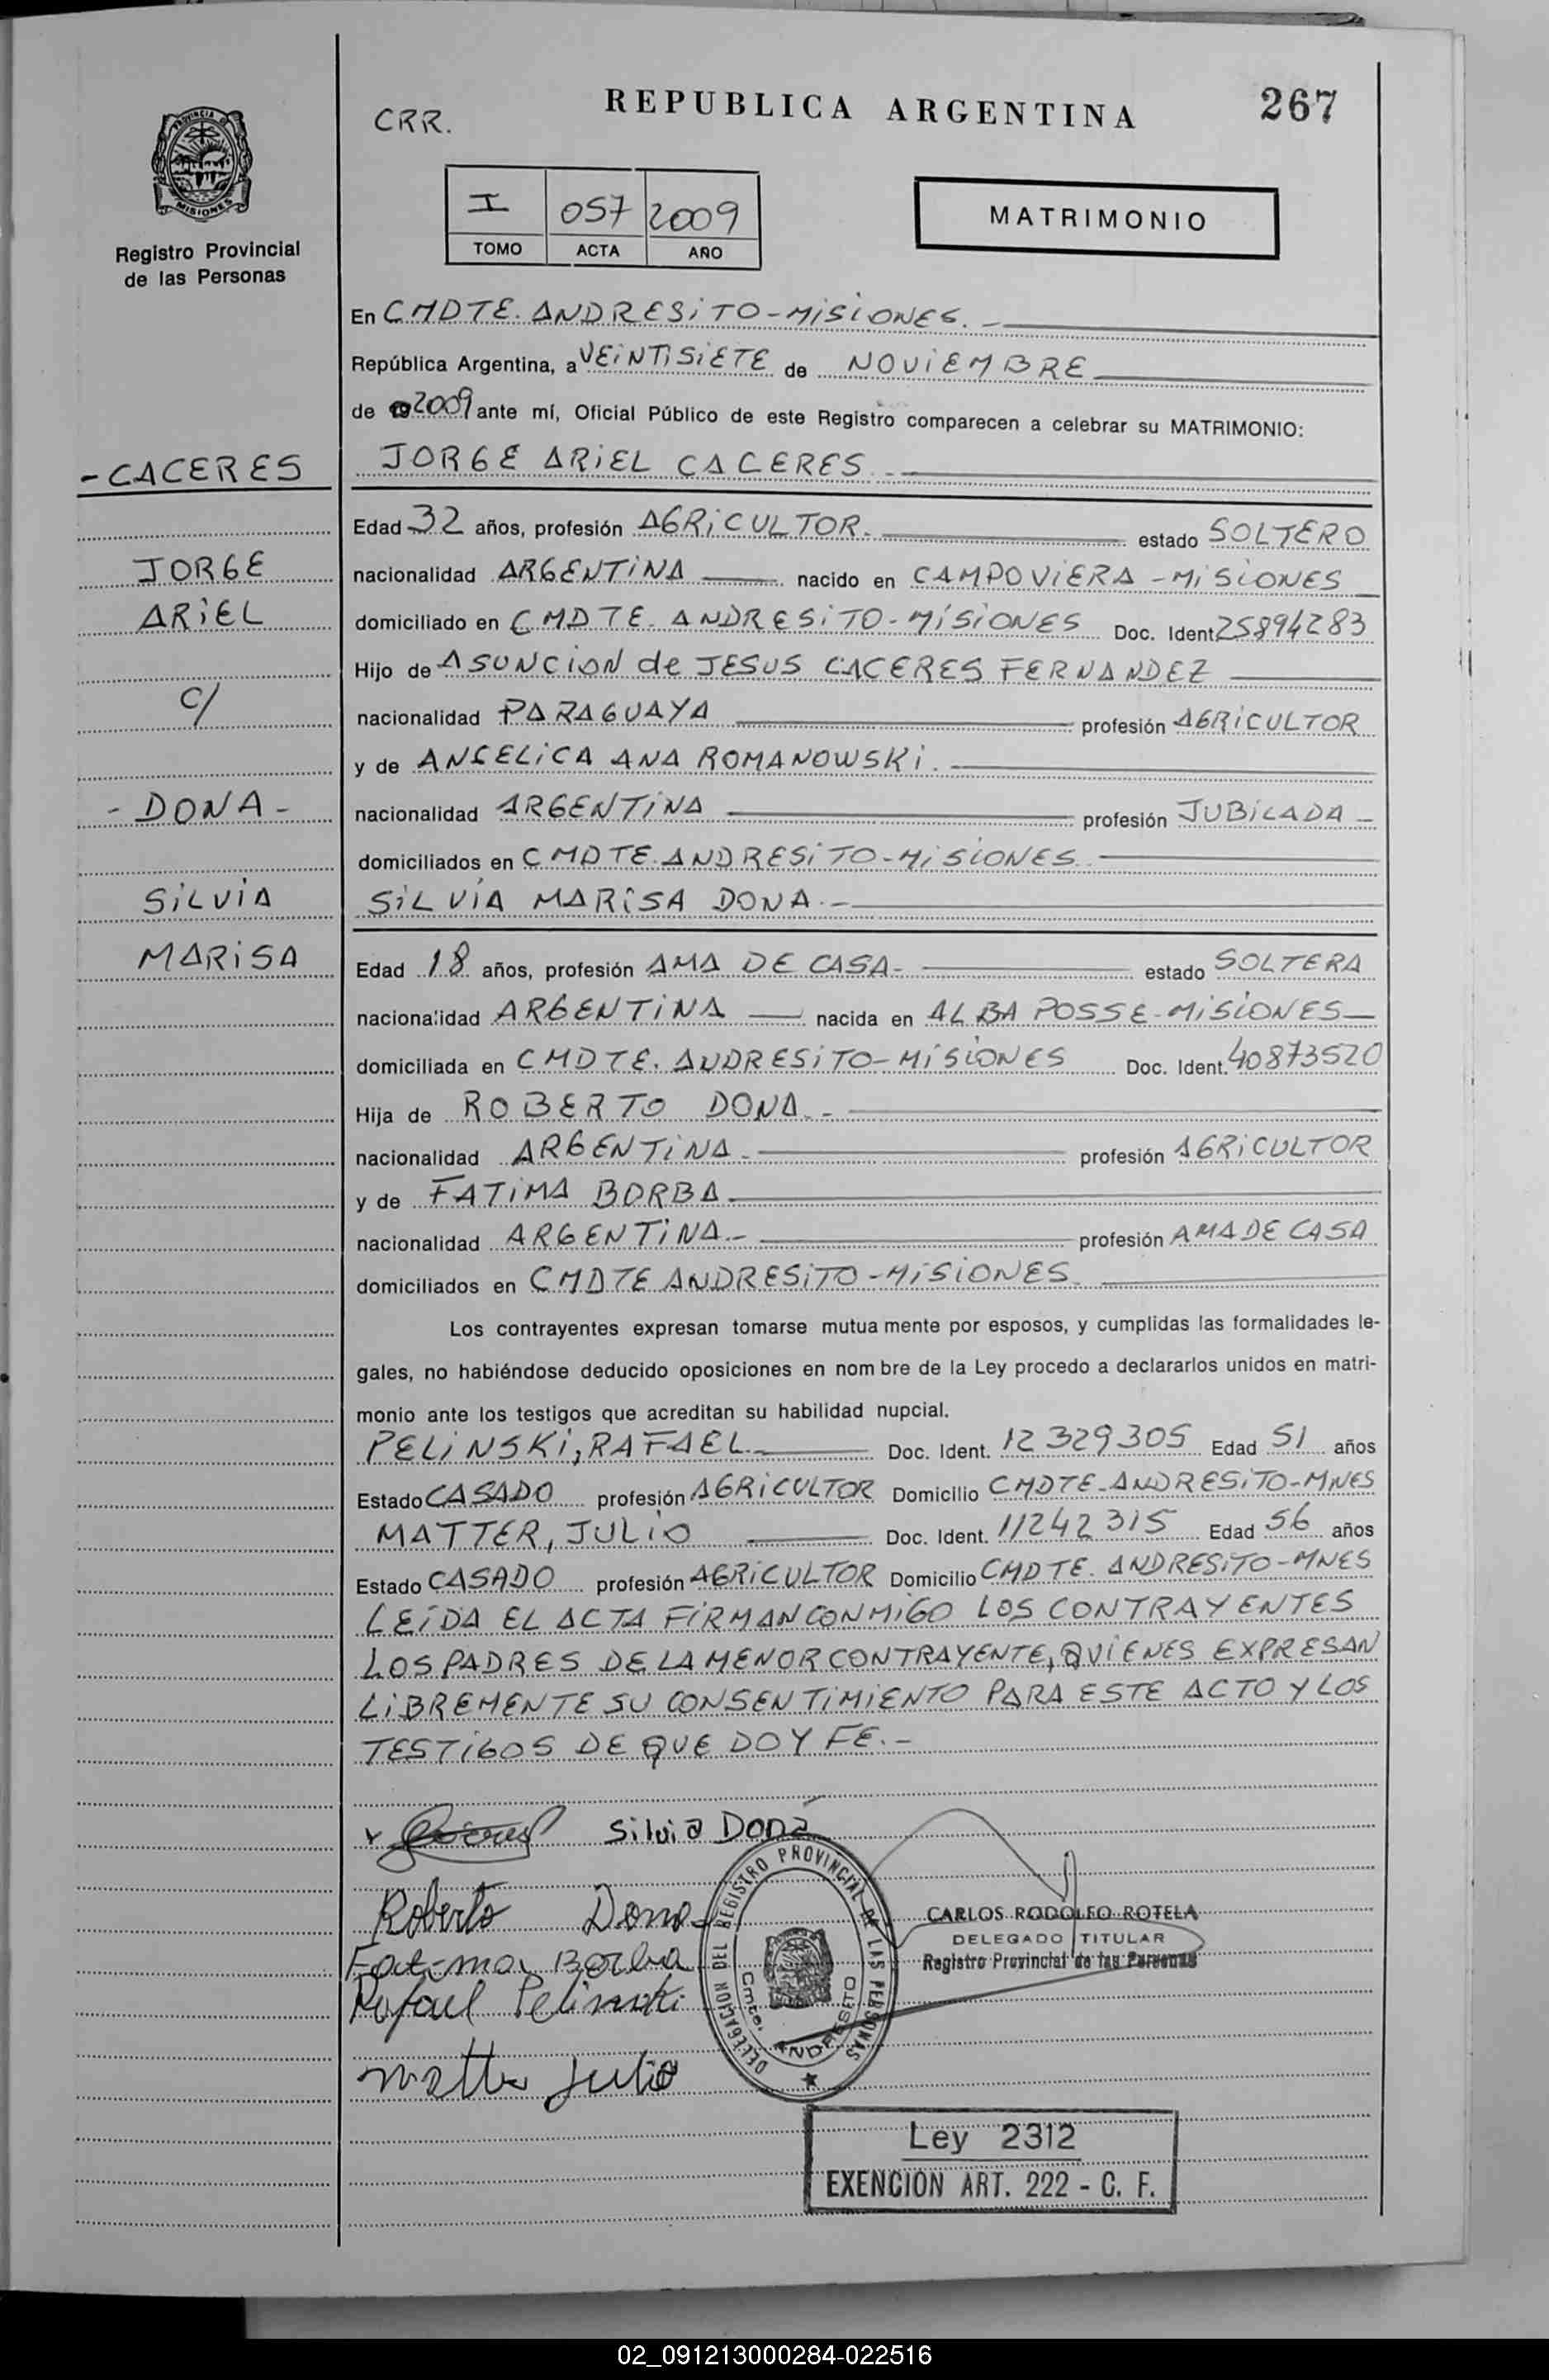 PROVINCIA DE
MISIONES
Registro Provincial
de las Personas
CRR.
REPUBLICA ARGENTINA
267
I 057 2009
TOMO ACTA AÑO
MATRIMONIO
En CMDTE. ANDRESiTO-MiSiONES. -
República Argentina, a VEiNTiSiETE de NOViEMBRE
de 19 2009 ante mí, Oficial Público de este Registro comparecen a celebrar su MATRIMONIO:
- CACERES
JORGE ARiEL CACERES
Edad 32 años, profesión AGRiCULTOR.- estado SOLTERO
JORGE
nacionalidad ARGENTiNA nacido en CAMPO ViERA - MiSiONES
ARiEL
domiciliado en CMDTE. ANDRESiTO-MiSiONES Doc. Ident 25894283
Hijo de ASUNCiON de JESUS CACERES FERNANDEZ
C/
nacionalidad PARAGUAYA profesión AGRiCULTOR
y de ANGELiCA ANA ROMANOWSKi.
- DONA -
nacionalidad ARGENTiNA profesión JUBiLADA -
domiciliados en CMDTE. ANDRESiTO-MiSiONES
SiLViA
SiLViA MARiSA DONA.-
MARiSA
Edad 18 años, profesión AMA DE CASA- estado SOLTERA
nacionalidad ARGENTiNA nacida en ALBA POSSE-MiSiONES
domiciliada en CMDTE. ANDRESiTO-MiSiONES Doc. Ident. 40873520
Hija de ROBERTO DONA.-
nacionalidad ARGENTiNA.- profesión AGRiCULTOR
y de FATiMA BORBA.
nacionalidad ARGENTiNA.- profesión AMA DE CASA
domiciliados en CMDTE ANDRESiTO-MiSiONES.
Los contrayentes expresan tomarse mutua mente por esposos, y cumplidas las formalidades le-
gales, no habiéndose deducido oposiciones en nom bre de la Ley procedo a declararlos unidos en matri-
monio ante los testigos que acreditan su habilidad nupcial.
PELiNSKi, RAFAEL.- Doc. Ident. 12329305 Edad 51 años
Estado CASADO profesión AGRiCULTOR Domicilio CMDTE-ANDRESiTO-MNES
MATTER, JULiO Doc. Ident. 11242315 Edad 56 años
Estado CASADO profesión AGRiCULTOR Domicilio CMDTE. ANDRESiTO-MNES
LEiDA EL ACTA FiRMAN CONMiGO LOS CONTRAYENTES
LOS PADRES DE LA MENOR CONTRAYENTE, QUiENES EXPRESAN
LiBREMENTE SU CONSENTiMiENTO PARA ESTE ACTO Y LOS
TESTiGOS DE QUE DOY FE.-
Silvia Dona
Roberto Dona
Fatima Borba
Rafael Pelinski
Matter Julio
DELEGACION DEL REGISTRO PROVINCIAL DE LAS PERSONAS
Cmte. ANDRESITO
CARLOS RODOLFO ROTELA
DELEGADO TITULAR
Registro Provincial de las Personas
Ley 2312
EXENCIÓN ART. 222 - C. F.
02_091213000284-022516